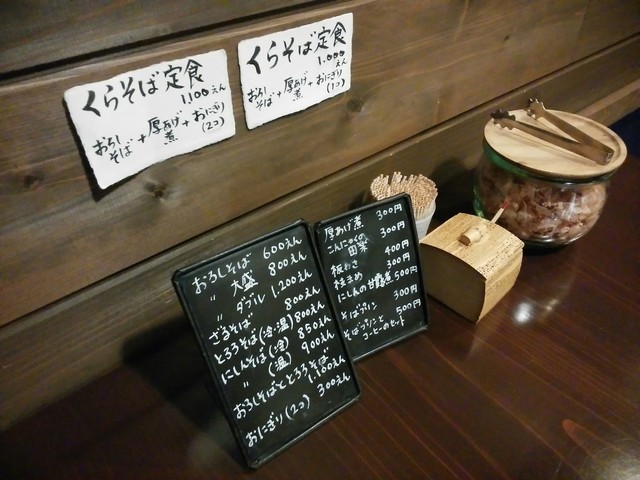 くらそば定食
1100えん
おろし
そば + 厚あげ
煮 + おにぎり
(2コ)
くらそば定食
1,000
えん
おろし
そば + 厚あげ
煮 + おにぎり
(1コ)
おろしそば 600えん
〃 大盛 800えん
〃 ダブル 1,200えん
ざるそば 800えん
とろろそば(冷・温)800えん
にしんそば(冷) 850えん
〃 (温) 900えん
おろしそばととろろそば
1,100えん
おにぎり(2コ) 300えん
厚あげ煮 300円
こんにゃくの
田楽 300円
板わさ 400円
枝まめ 300円
にしんの甘露煮 500円
そばプリン 300円
そばプリンと
コーヒーのセット 500円